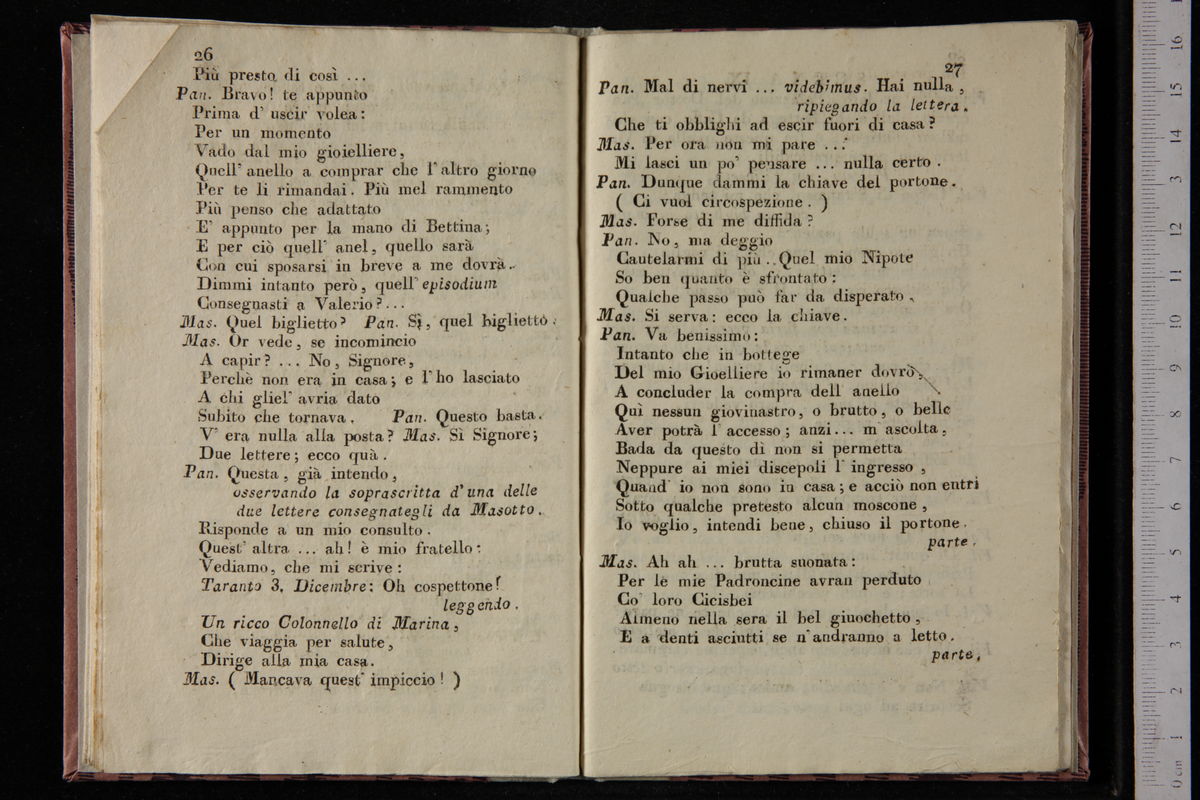 26
Più presto di così ...
Pan. Bravo! te appunto
Prima d' uscir volea:
Per un momento
Vado dal mio gioielliere,
Quell' anello a comprar che l' altro giorno
Per te li rimandai. Più mel rammento
Più penso che adattato
E' appunto per la mano di Bettina;
E per ciò quell' anel, quello sarà
Con cui sposarsi in breve a me dovrà..
Dimmi intanto però, quell' episodium
Consegnasti a Valerio?...
Mas. Quel biglietto? Pan. Sì, quel biglietto.
Mas. Or vede, se incomincio
A capir? ... No, Signore,
Perchè non era in casa; e l' ho lasciato
A chi gliel' avria dato
Subito che tornava. Pan. Questo basta.
V' era nulla alla posta? Mas. Sì Signore;
Due lettere; ecco quà.
Pan. Questa, già intendo,
osservando la soprascritta d' una delle
due lettere consegnategli da Masotto.
Risponde a un mio consulto.
Quest' altra ... ah! è mio fratello:
Vediamo, che mi scrive:
Taranto 3. Dicembre: Oh cospettone!
leggendo.
Un ricco Colonnello di Marina,
Che viaggia per salute,
Dirige alla mia casa.
Mas. ( Mancava quest' impiccio! )
27
Pan. Mal di nervi ... videbimus. Hai nulla,
ripiegando la lettera.
Che ti obblighi ad escir fuori di casa?
Mas. Per ora non mi pare ...
Mi lasci un po' pensare ... nulla certo.
Pan. Dunque dammi la chiave del portone.
( Ci vuol circospezione. )
Mas. Forse di me diffida?
Pan. No, ma deggio
Cautelarmi di più .. Quel mio Nipote
So ben quanto è sfrontato:
Qualche passo può far da disperato.
Mas. Si serva: ecco la chiave.
Pan. Va benissimo:
Intanto che in bottege
Del mio Gioelliere io rimaner dovrò,
A concluder la compra dell' anello
Quì nessun giovinastro, o brutto, o bello
Aver potrà l' accesso; anzi... m' ascolta,
Bada da questo dì non si permetta
Neppure ai miei discepoli l' ingresso,
Quand' io non sono in casa; e acciò non entri
Sotto qualche pretesto alcun moscone,
Io voglio, intendi bene, chiuso il portone.
parte.
Mas. Ah ah ... brutta suonata:
Per le mie Padroncine avran perduto
Co' loro Cicisbei
Almeno nella sera il bel giuochetto,
E a denti asciutti se n' andranno a letto.
parte.
0 cm 1 2 3 4 5 6 7 8 9 10 11 12 13 14 15 16